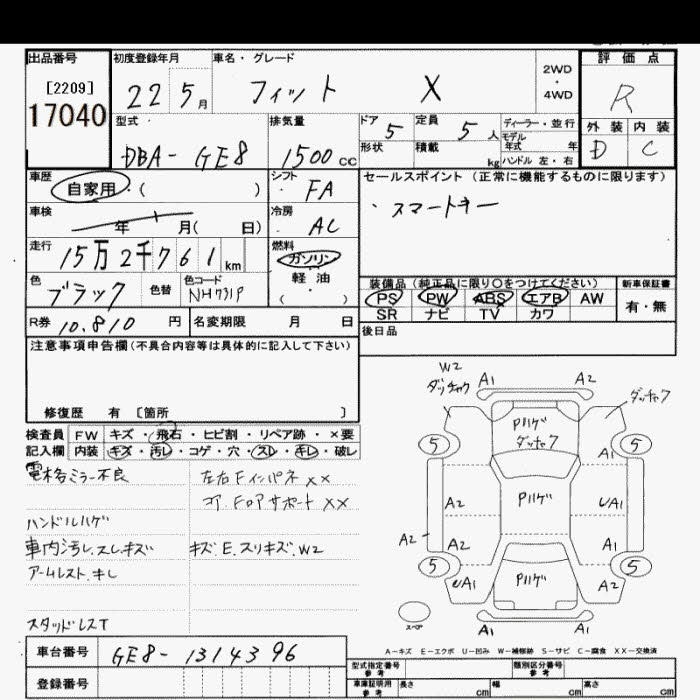 出品番号 初度登録年月 車名・グレード 評価点
[2209] 22 5月 フィット X 2WD・4WD R
17040 外装 内装
型式 排気量 ドア 5 定員 5人 ディーラー・並行
DBA-GE8 1500cc 形状 積載 kg モデル年式 年 D C
ハンドル 左・右
車歴 シフト セールスポイント(正常に機能するものに限ります)
自家用・( ) FA ・スマートキー
車検 年 月( 日) 冷房 AC
走行 燃料
15万2千761km ガソリン
軽油
色 色替 色コード ・( ) 装備品(純正品に限り○をつけてください) 新車保証書
ブラック NH731P PS PW ABS エアB AW 有・無
SR ナビ TV カワ
R券 10,810円 名変期限 月 日 後日品
注意事項申告欄(不具合内容等は具体的に記入して下さい)
修復歴 有 [箇所 ]
検査員 FW キズ・飛石・ヒビ割・リペア跡・×要
記入欄 内装 キズ・汚レ・コゲ・穴・スレ・キレ・破レ
電格ミラー不良 左右Fインパネxx
コア.Fロアサポートxx
ハンドルハゲ
車内汚レ.スレ.キズ キズ.E.スリキズ.W2
アームレスト.キレ
スタッドレスT
W2 A1 A2
ダッチャク ダッチャク
Pハゲ
ダッチャク
5 5
A1
A2 Pハゲ UA1
A2 A2 A1
5 5
UA1 Pハゲ A2
スペア A1 A1
A-キズ E-エクボ U-凹み W-補修跡 S-サビ C-腐食 XX-交換済
車台番号 GE8-1314396
登録番号
型式指定番号 参考 類別区分番号 参考
車庫証明用 参考 長さ cm 幅 cm 高さ cm